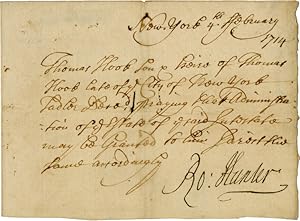 New York 4th February
1714
Thomas Hook Son & heire of Thomas
Hook late of ye City of New York
decd praying that Administra
tion of ye Estate of ye said Intestate
may be Granted to him
same accordingly
Ro: Hunter